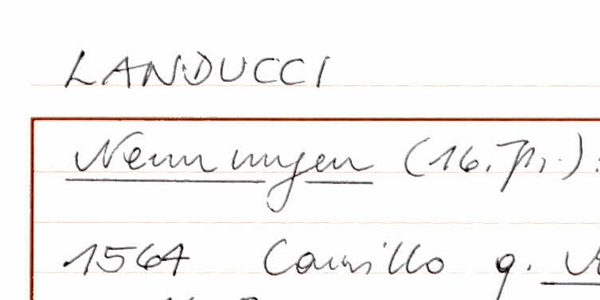 LANDUCCI
Nennungen (16. Jh.):
1564 Camillo q.